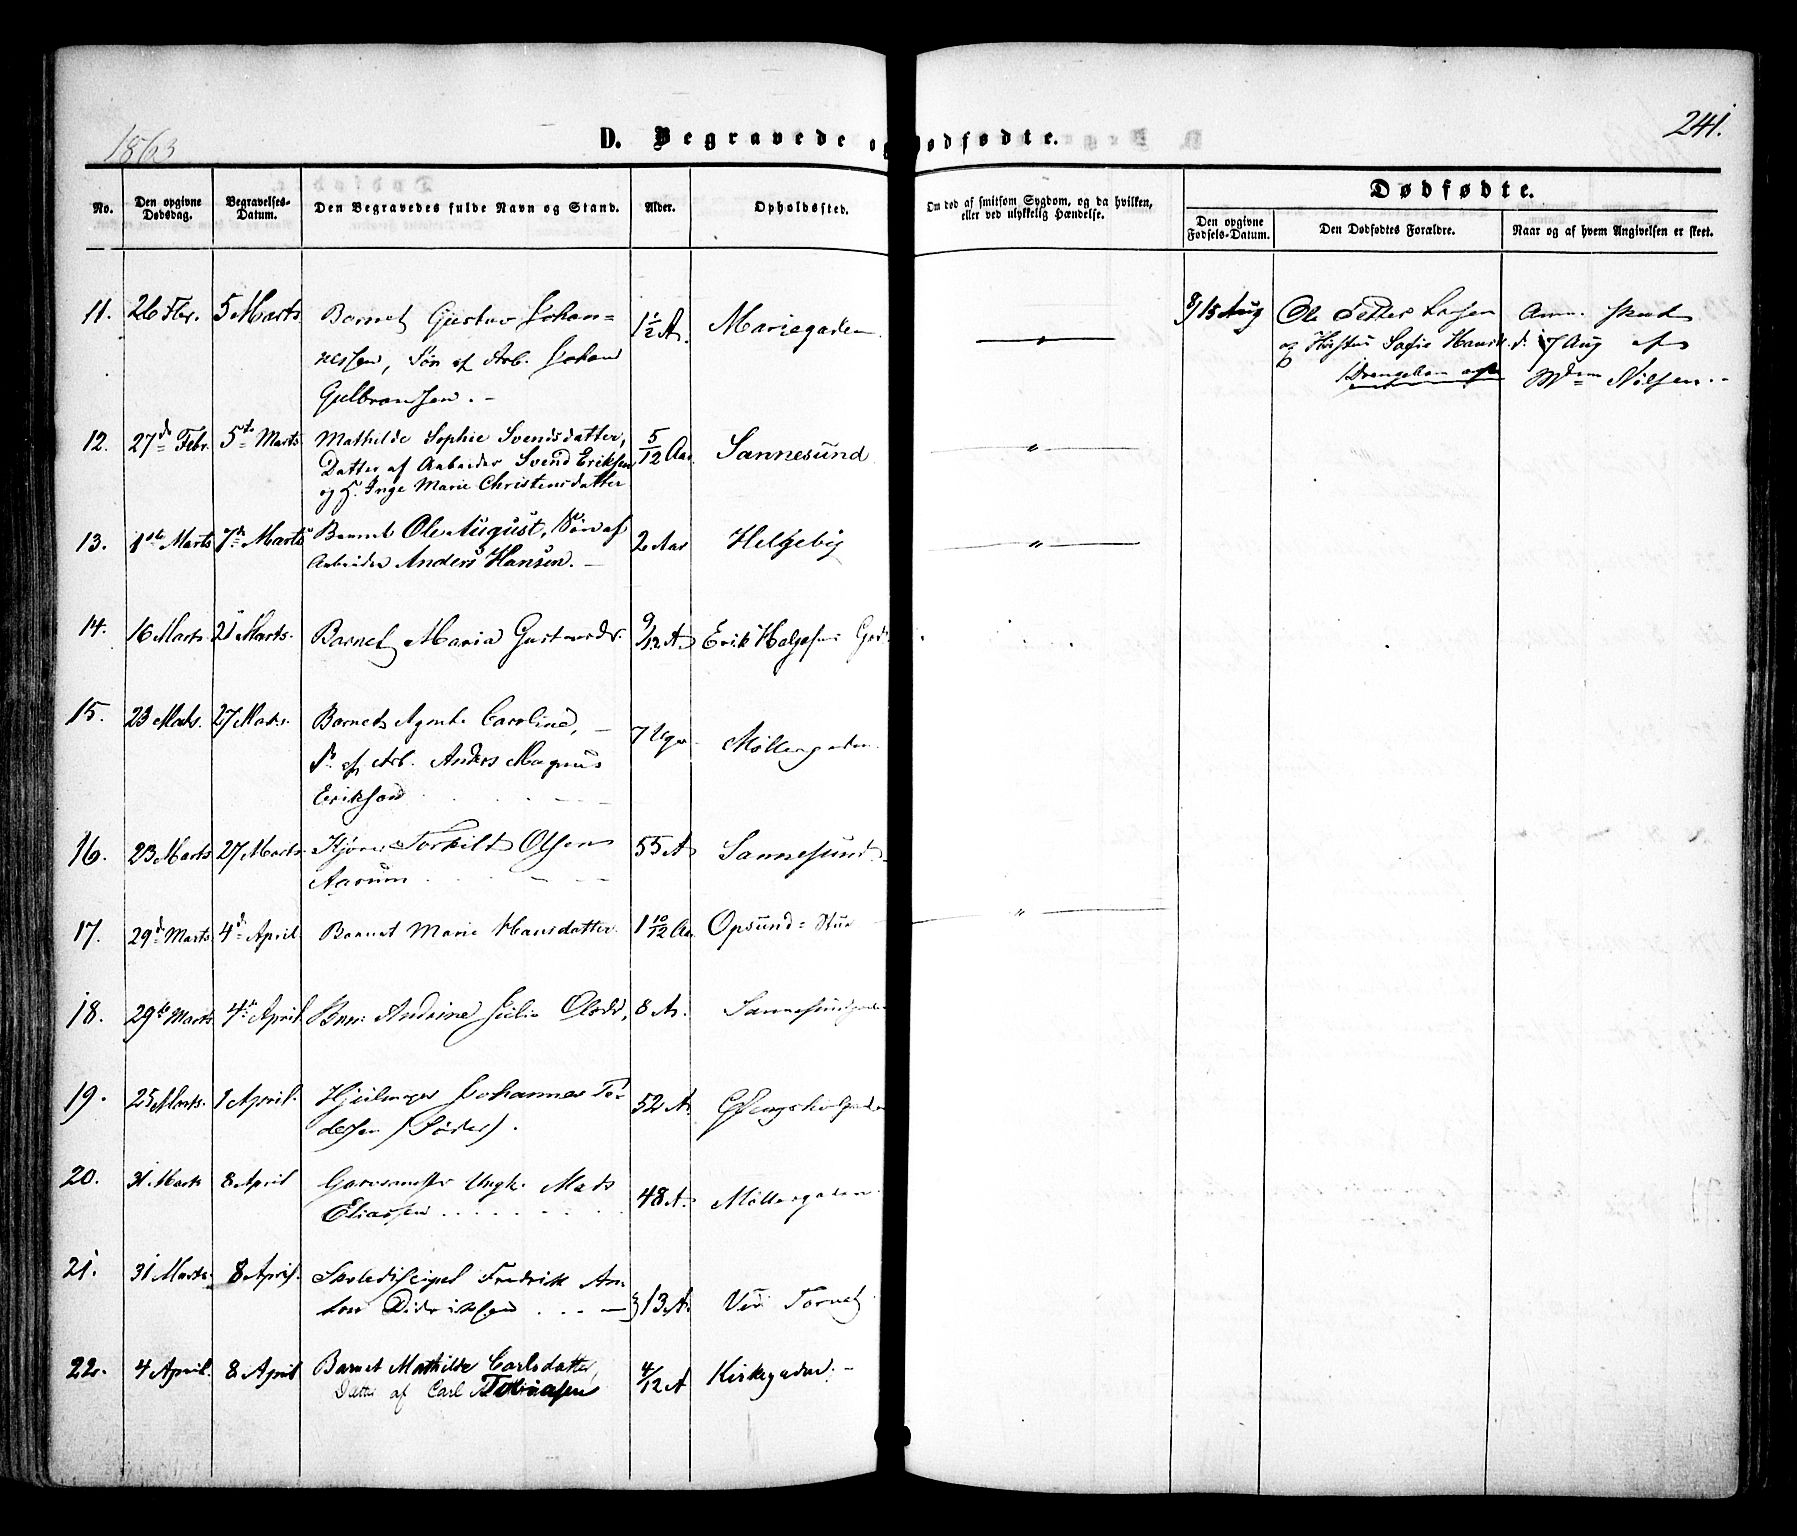 1863
D. Begravede og Dødfødte.
241.
No.
Den opgivne Dødsdag.
Begravelses-Datum.
Den Begravedes fulde Navn og Stand.
Alder.
Opholdssted.
Om død af smitsom Sygdom, og da hvilken, eller ved ulykkelig Hændelse.
Dødfødte.
Den opgivne Fødsels-Datum.
Den Dødfødtes Forældre.
Naar og af hvem Angivelsen er skeet.
11. 26 Febr. 5 Marts Barnet Gustav Johan= 1 1/2 A. Mariegaden
nessen, Søn af Arb. Johan
Gulbransen. -
15 Aug Ole Petter Larsen
og Sofie
Anm. skeed
d. 17 Aug af
Mdm Nilsen. -
12. 27d Febr. 5te Marts Mathilde Sophie Svendsdatter, 5/12 Aar Sannesund "
Datter af Arbeider Svend Eriksen
og H. Inge Marie Christensdatter
13. 1ste Marts 7de Marts Barnet Ole August, Søn af 2 Aar Helgeby "
Arbeider Anders Hansen. -
14. 16 Marts 21 Marts. Barnet Maria Gustavsdr. 9/12 A. Erik Halgesens
15. 23 Marts. 27 Marts. Barnet Agnete Caroline, 7 Uger Møllergaden
D. af Arb. Anders Magnus
Eriksen
16. 23 Marts 27 Marts Torkild Olsen 55 A Sannesund.
Aarum
17. 29d Marts 4d April Barnet Marie Hansdatter. 1 10/12 Aar Opsund= Stue "
18. 29de Marts 4de April Andrine Julie Olsdr, 8 A.
19. 25 Marts. 1 April. Johannes To= 52 A.
dersen
20. 31 Marts 8 April Garversvend Ungk. Mads 48 A. Møllergaden
Eliassen
21. 31 Marts. 8 April. Skoledisipel Fredrik An= 13 A. Ved Torvet
ton Didriksen
22. 4 April. 8 April Barnet Mathilde Carlsdatter, 4/12 A Kirkegaden. -
Datter af Carl Tobiasen